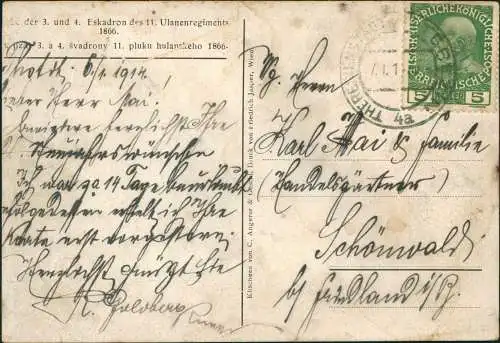 der 3. und 4. Eskadron des 11. Ulanenregiments
1866.
3. a 4. švadrony 11. pluku hulanského 1866.
6/1. 1914.
Herr Mai.
herzlichst Ihre
Neujahrswünsche
Ich war ca 14 Tage
infolgedessen erhielt ich Ihre
Karte erst vorgestern.
Goldberg
Klischees von C. Angerer & Göschl, Druck von Friedrich Jasper, Wien.
THERE
4a
KAISERLICHE KÖNIGLICHE
ÖSTERREICHISCHE POST
5 5
Sg. Herrn
Karl Mai & Familie
(Handelsgärtner)
Schönwald
b/ Friedland i/B.